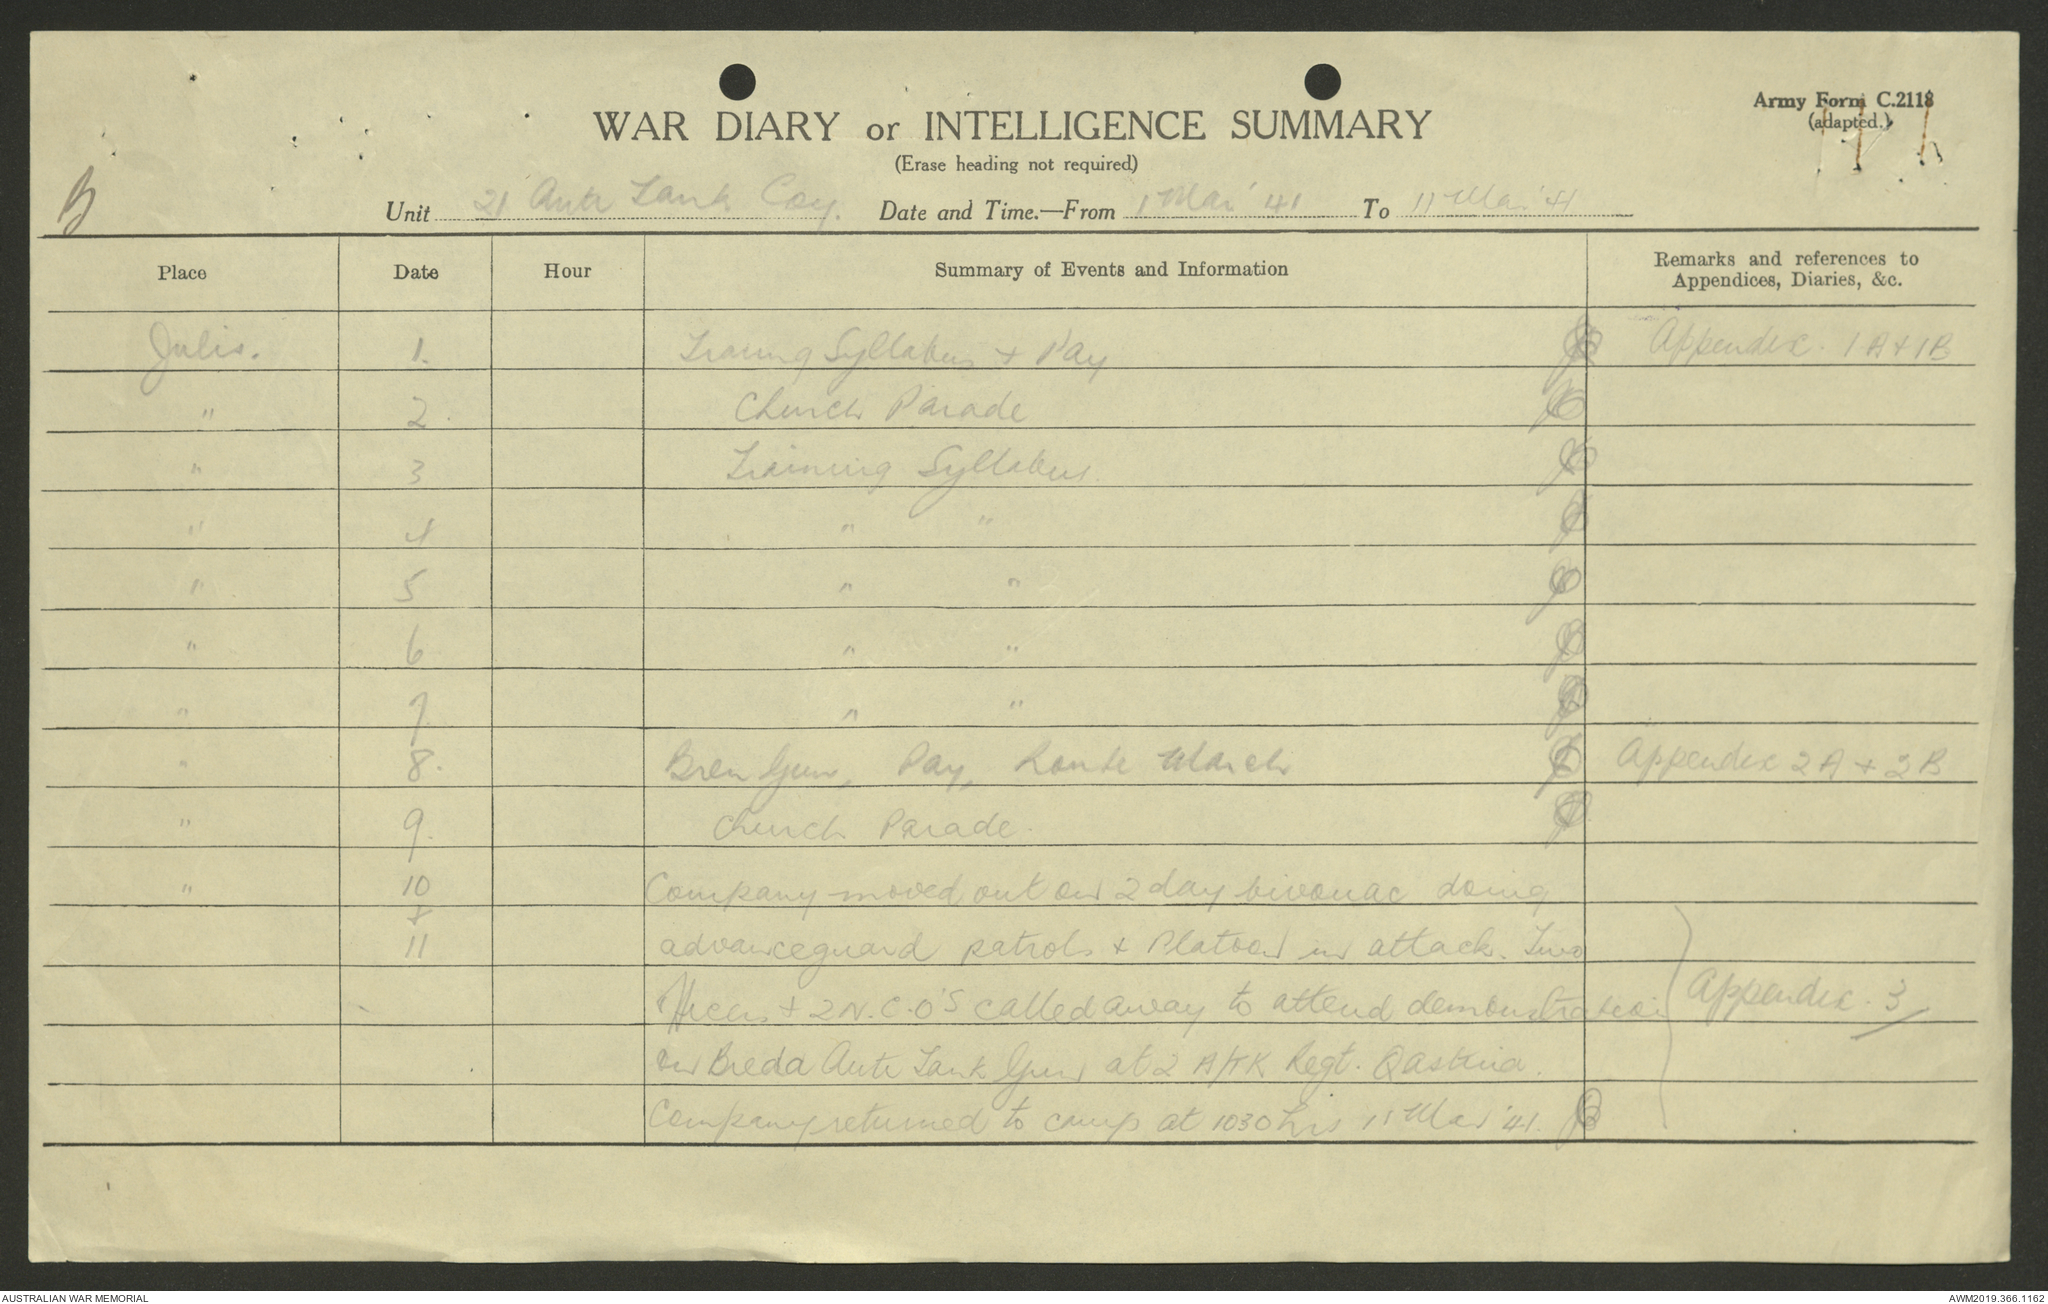 WAR DIARY or INTELLIGENCE SUMMARY
(Erase heading not required)
Army Form C.2118
(adapted.)
Unit 21 Anti Tank Coy. Date and Time.—From 1 Mar '41 To 11 Mar '41
Place Date Hour Summary of Events and Information Remarks and references to
Appendices, Diaries, &c.
Julis. 1. Training Syllabus + Pay Appendix. 1A + 1B
" 2. Church Parade
" 3 Training Syllabus.
" 4 " "
" 5 " "
" 6 " "
" 7 " "
" 8. Bren Gun, Pay, Route March Appendix 2A + 2B
" 9. Church Parade.
" 10 Company moved out on 2 day bivouac doing
+
11 advanceguard patrols + Platoon in attack. Two
Officers + 2 N.C.O'S called away to attend demonstration Appendix. 3
on Breda Anti Tank Gun at 2 A/TK Regt. Qastina.
Company returned to camp at 1030 hrs 11 Mar '41.
AUSTRALIAN WAR MEMORIAL
AWM2019.366.1162